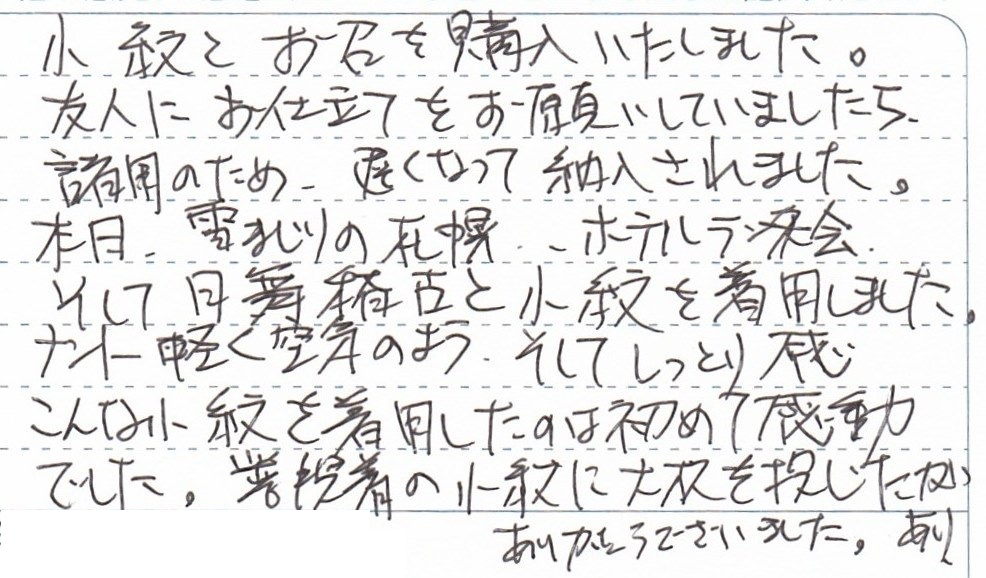 小紋とお召を購入いたしました。
友人にお仕立てをお願いしていましたら、
諸用のため、遅くなって納入されました。
本日、雪まじりの札幌、、ホテルランチ会、
そして日舞稽古と小紋を着用しました。
ナント軽く空気のよう、そしてしっとり感
こんな小紋を着用したのは初めて感動
でした。普段着の小紋に大枚を投じたなか
ありがとうございました。あり